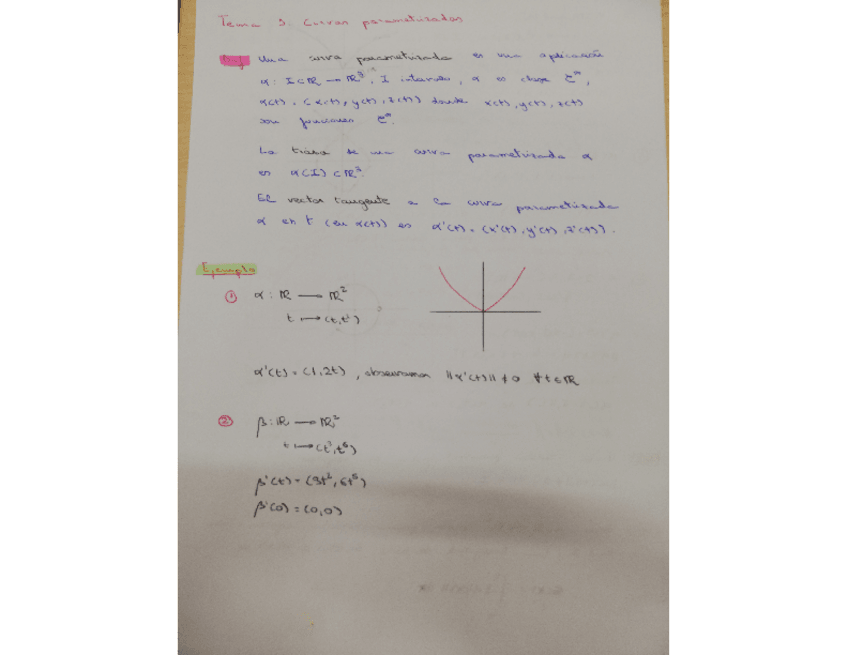 Tema 3. Curvas parametrizadas
Def Una curva parametrizada es una aplicación
α: I⊂ℝ → ℝ³, I intervalo, α es clase C^∞,
α(t) = (x(t), y(t), z(t)) donde x(t), y(t), z(t)
son funciones C^∞.
La traza de una curva parametrizada α
es α(I) ⊂ ℝ³.
El vector tangente a la curva parametrizada
α en t (en α(t)) es α'(t) = (x'(t), y'(t), z'(t)).
Ejemplo
① α: ℝ → ℝ²
t ↦ (t, t²)
α'(t) = (1, 2t), observamos ||α'(t)|| ≠ 0 ∀t∈ℝ
② β: ℝ → ℝ²
t ↦ (t³, t⁶)
β'(t) = (3t², 6t⁵)
β'(0) = (0,0)